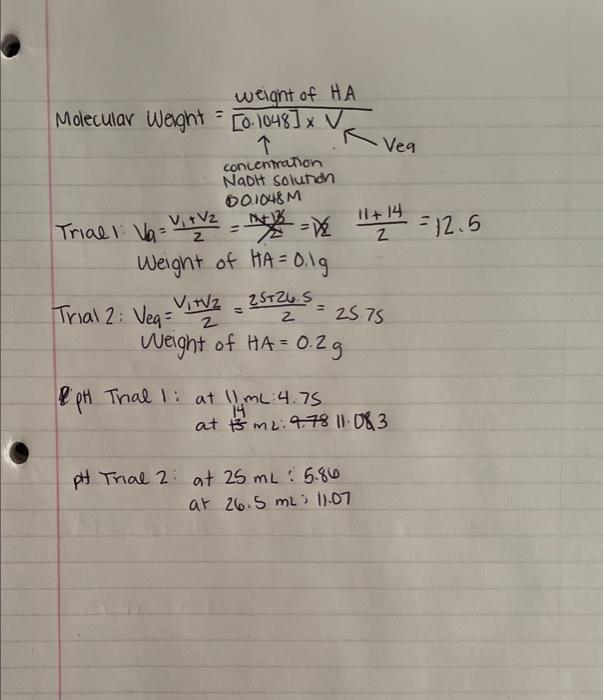 weight of HA
Molecular Weight = [0.1048] x V
Veq
concentration
NaOH solution
0.1048M
Trial 1: Vq = V1+V2 / 2 = 11+13 / 2 = 12 11+14 / 2 = 12.5
Weight of HA = 0.1g
Trial 2: Veq = V1+V2 / 2 = 25+26.5 / 2 = 25.75
Weight of HA = 0.2g
pH Trial 1: at 11 mL: 4.75
at 13 14 mL: 9.78 11.083
pH Trial 2: at 25 mL: 5.86
at 26.5 mL: 11.07